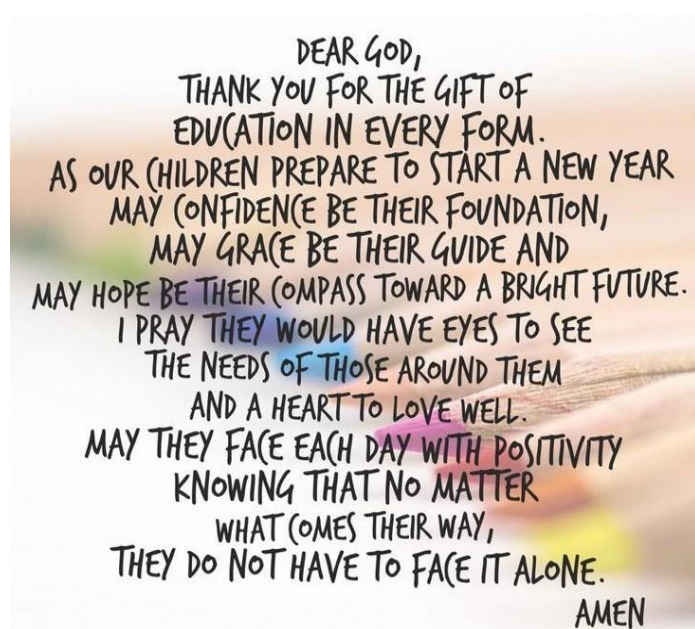 DEAR GOD,
THANK YOU FOR THE GIFT OF
EDUCATION IN EVERY FORM.
AS OUR CHILDREN PREPARE TO START A NEW YEAR
MAY CONFIDENCE BE THEIR FOUNDATION,
MAY GRACE BE THEIR GUIDE AND
MAY HOPE BE THEIR COMPASS TOWARD A BRIGHT FUTURE.
I PRAY THEY WOULD HAVE EYES TO SEE
THE NEEDS OF THOSE AROUND THEM
AND A HEART TO LOVE WELL.
MAY THEY FACE EACH DAY WITH POSITIVITY
KNOWING THAT NO MATTER
WHAT COMES THEIR WAY,
THEY DO NOT HAVE TO FACE IT ALONE.
AMEN